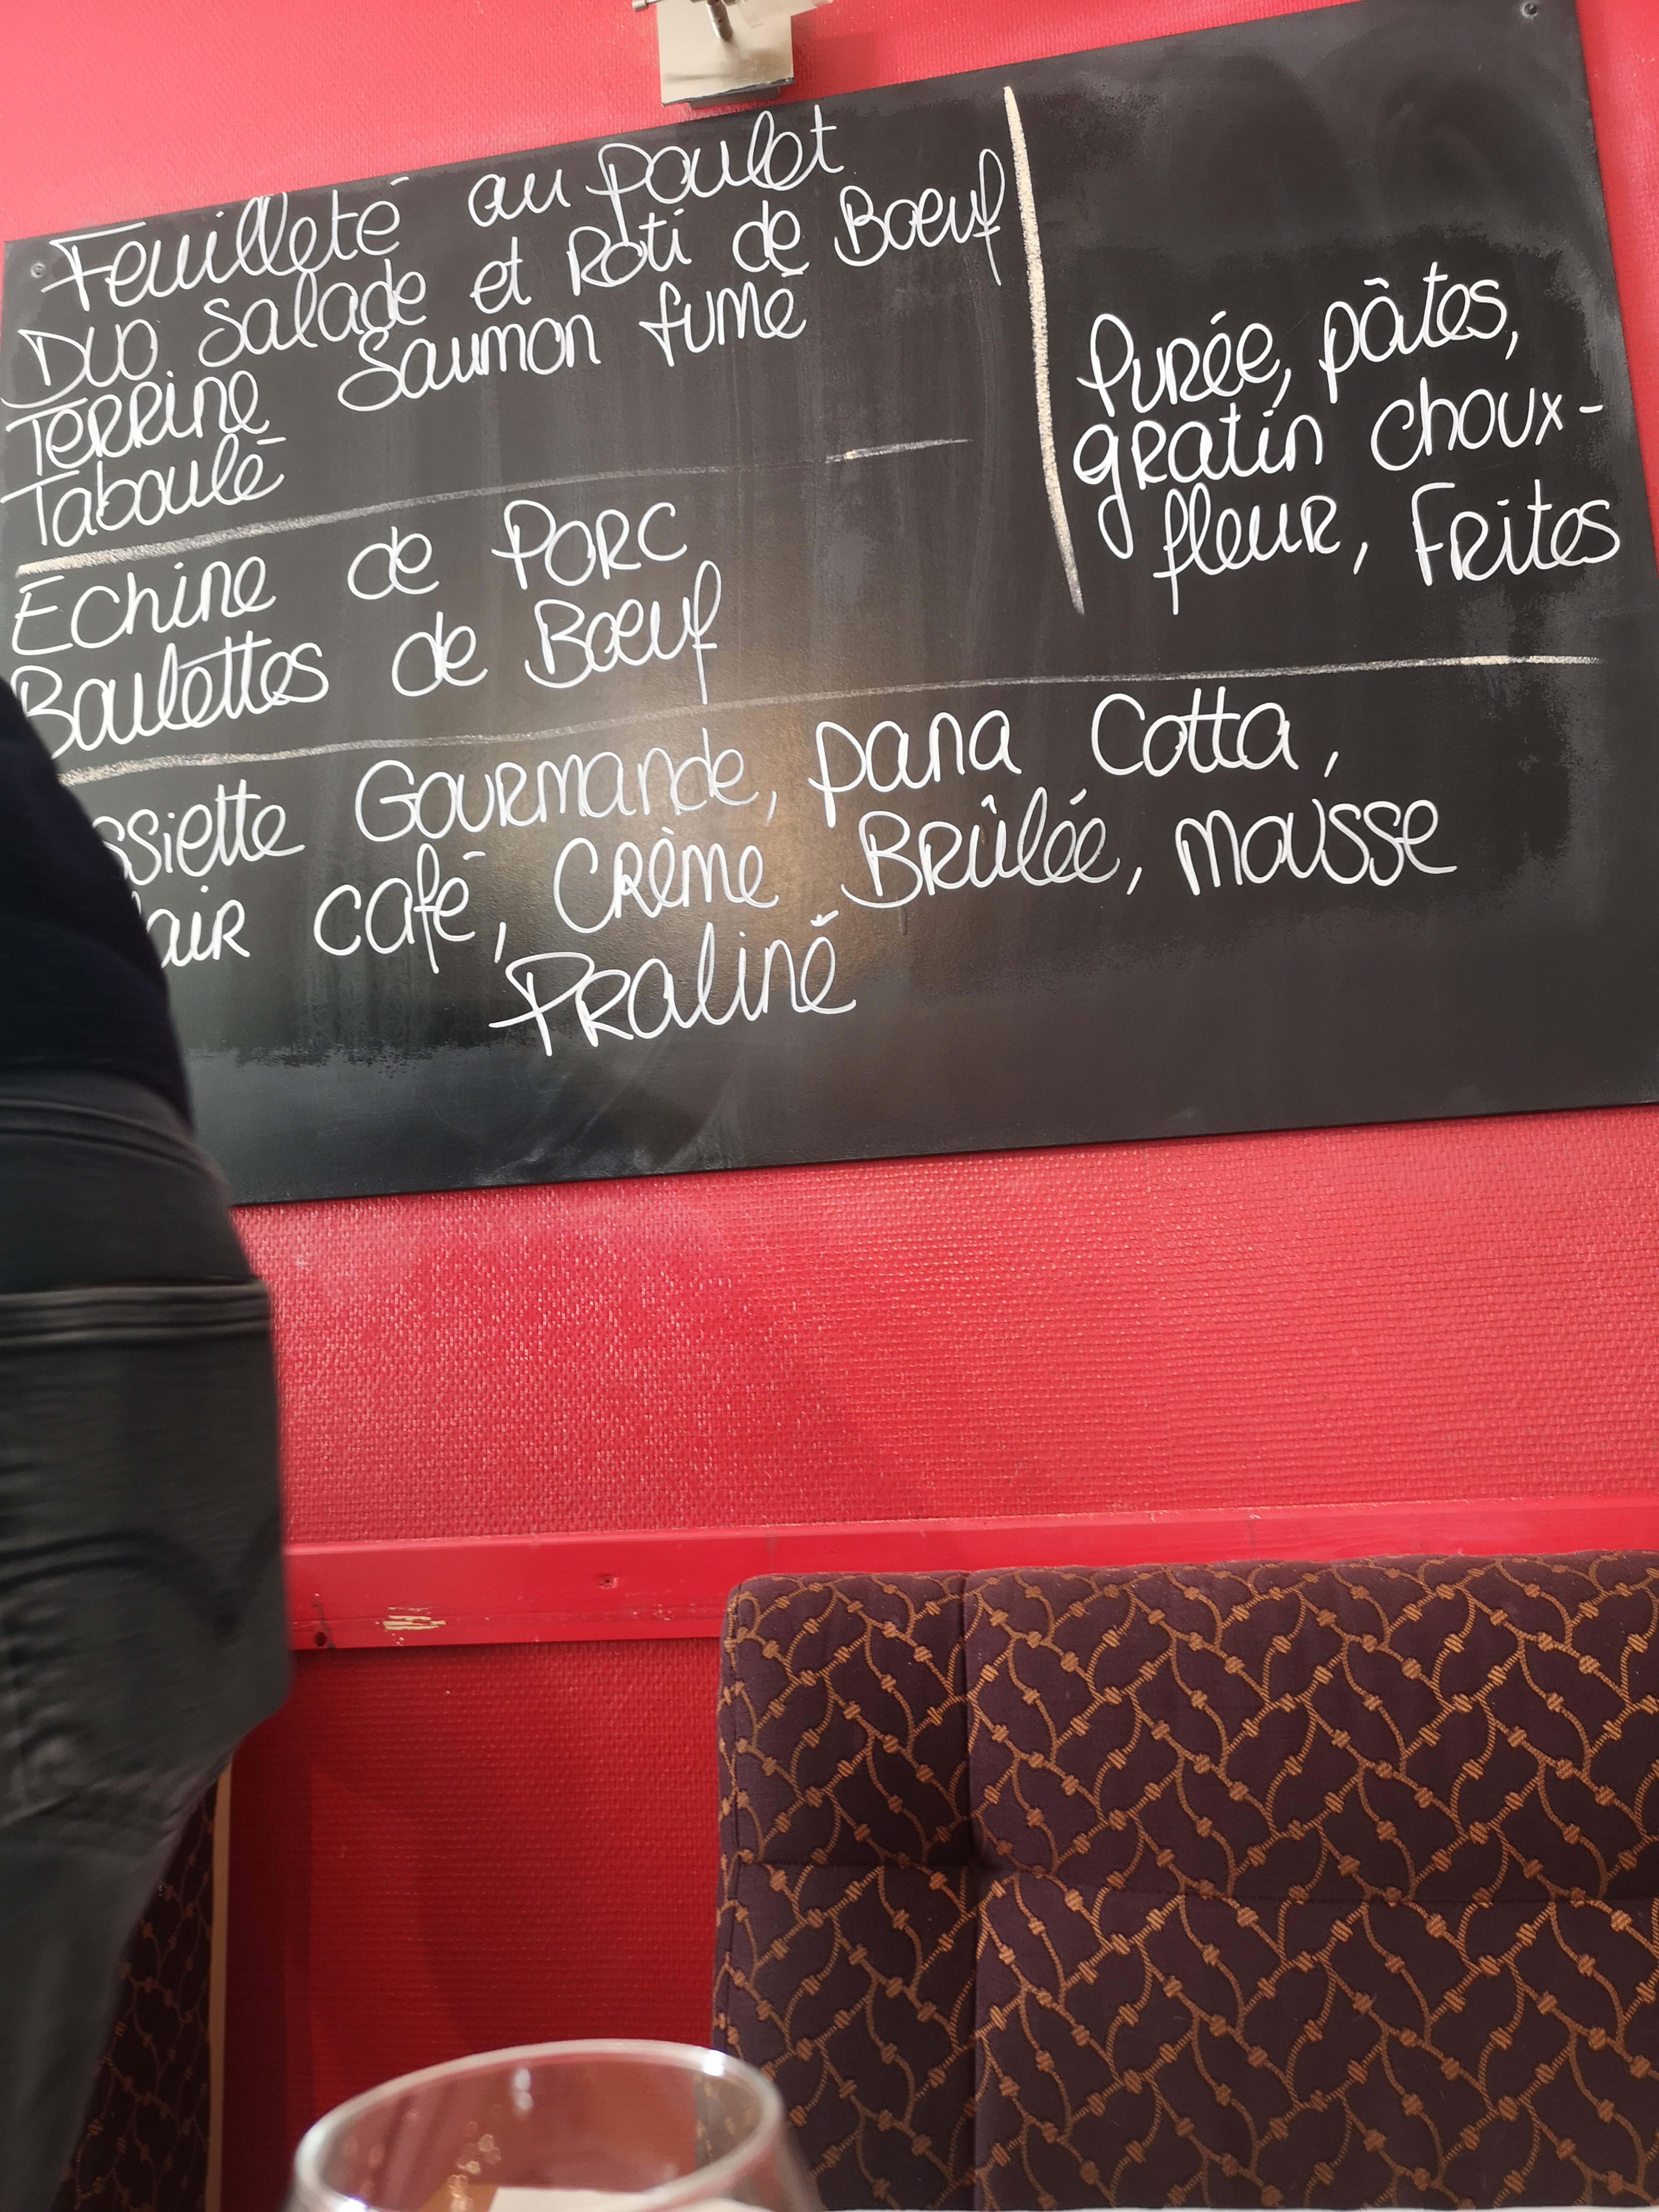 Feuilleté au poulet
Duo Salade et Roti de Boeuf
Terrine Saumon fumé
Taboulé
Echine de Porc
Boulettes de Boeuf
Purée, pâtes,
gratin choux-
fleur, Frites
Gourmande, pana Cotta,
café, Crème Brûlée, mousse
Praliné